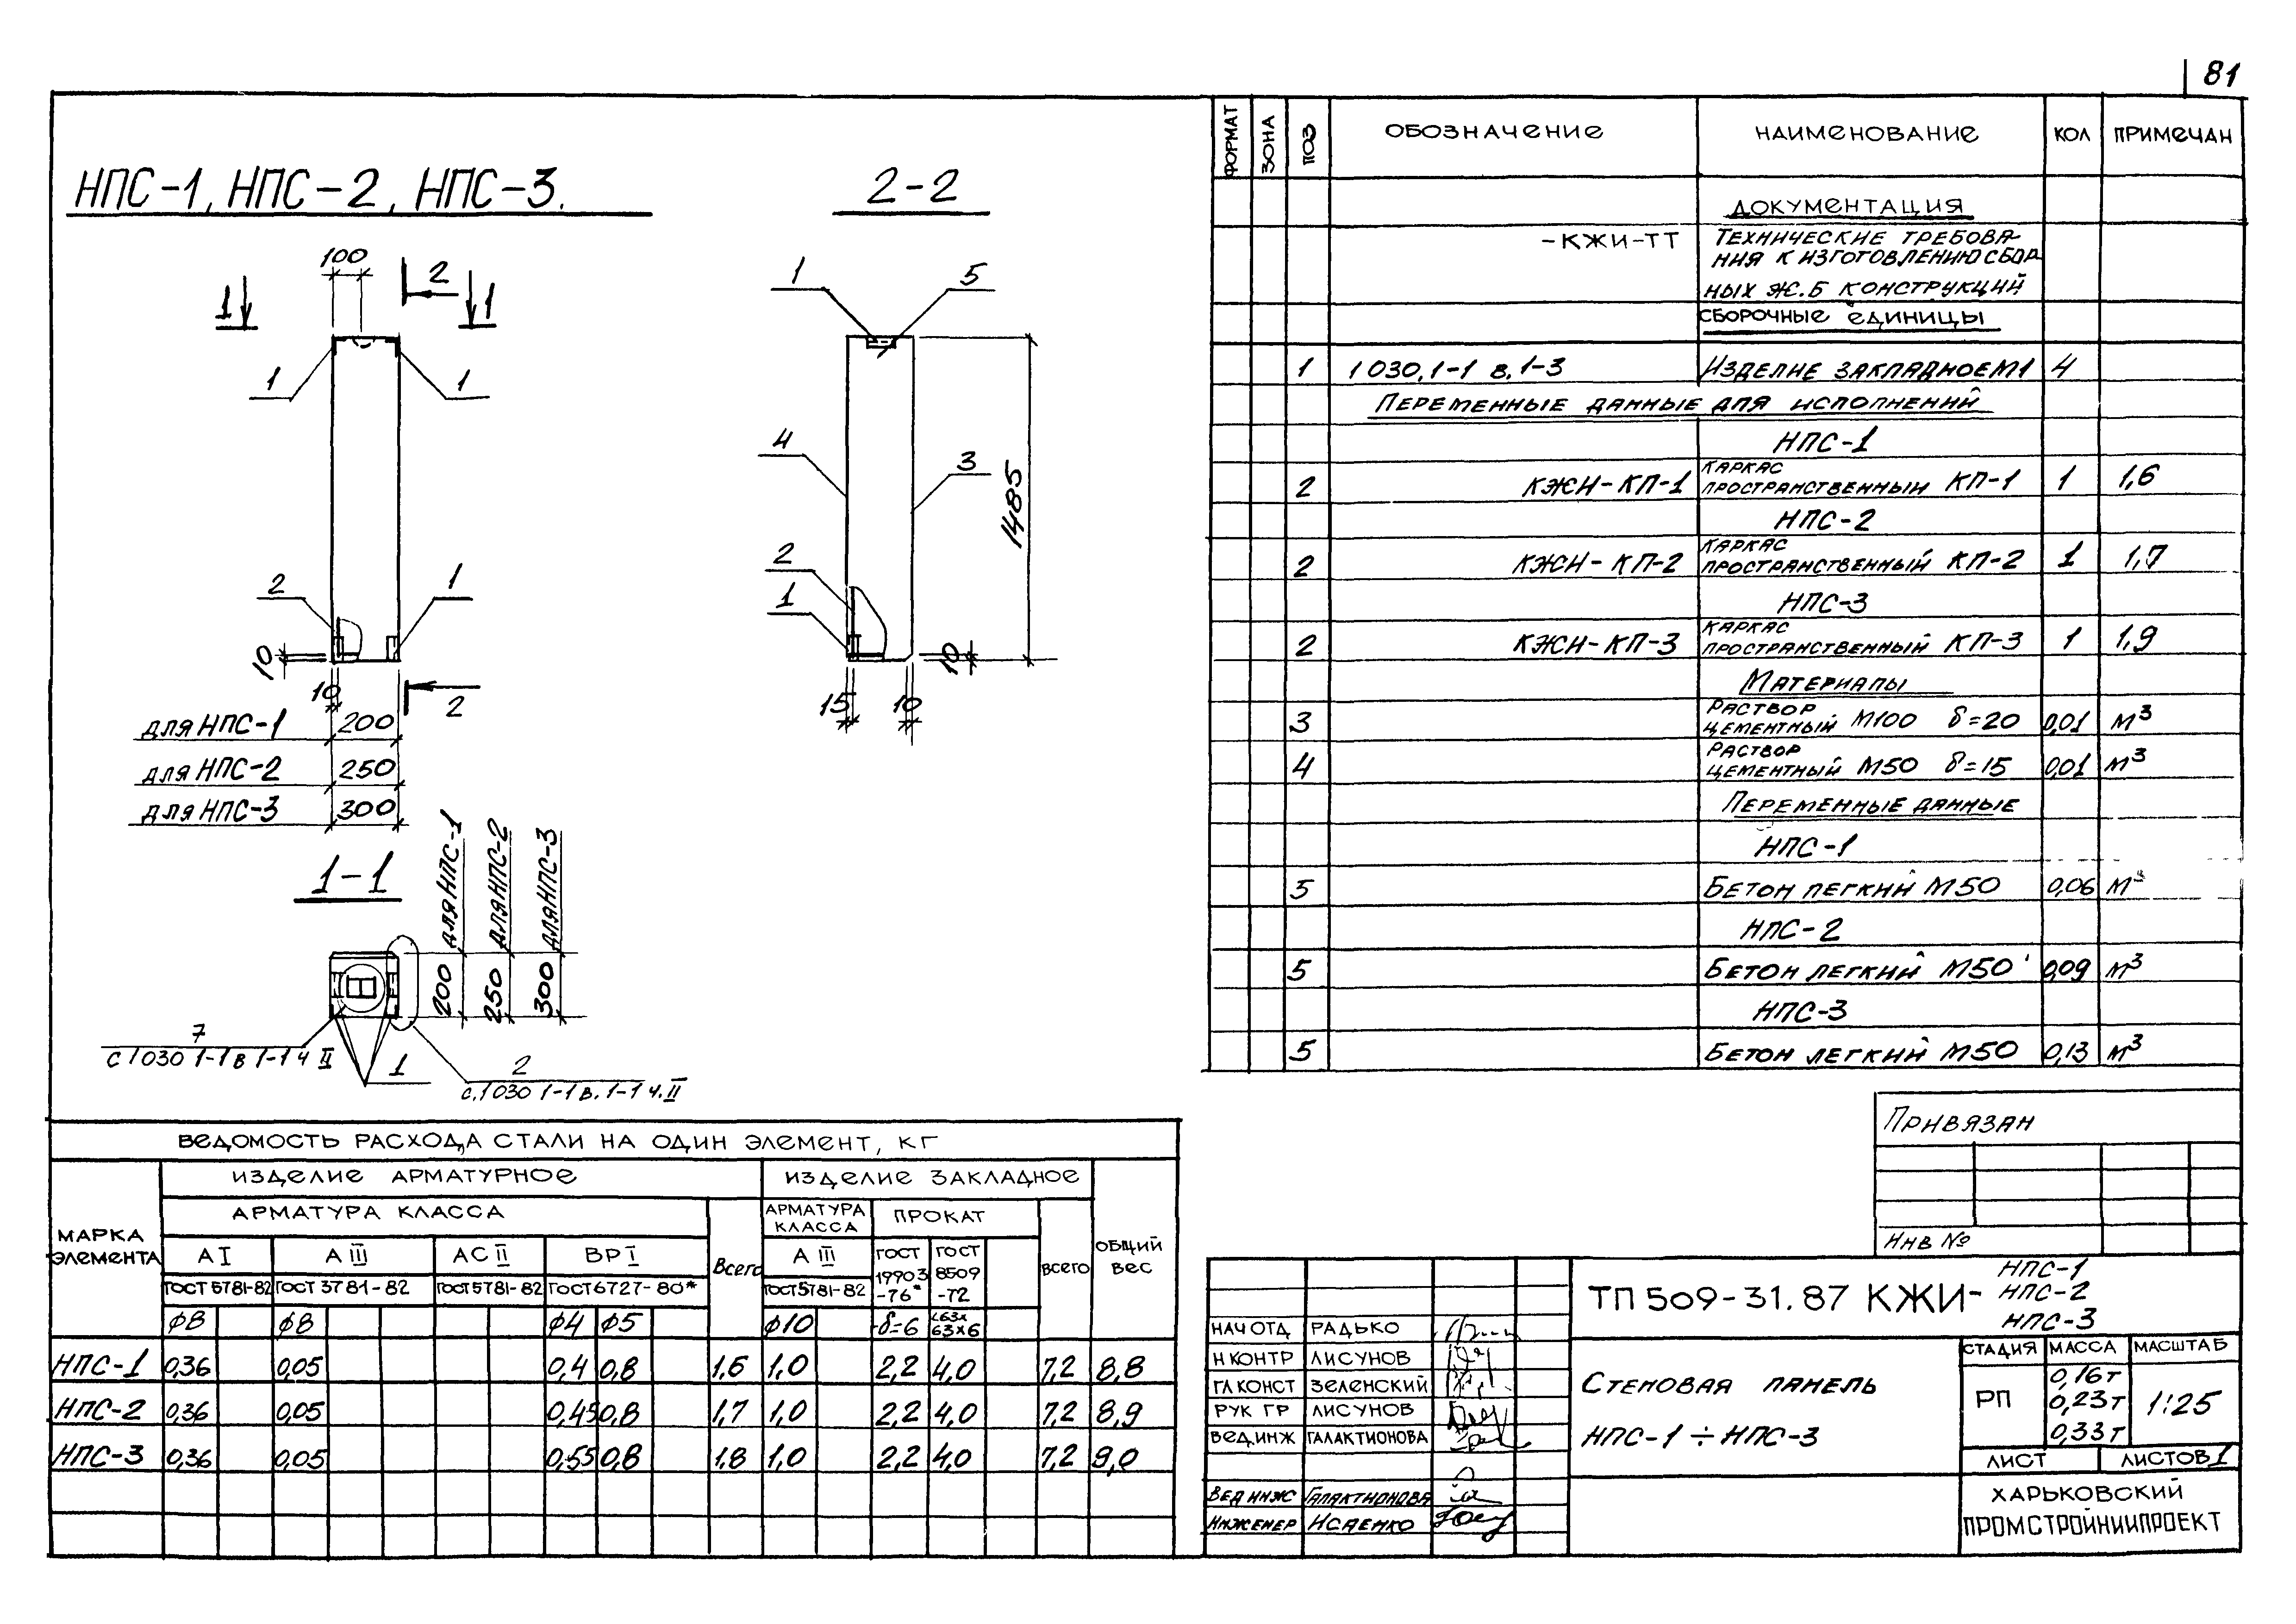 81
НПС-1, НПС-2, НПС-3.
2-2
100
2
1
1
1
1
2
1
10
10
2
для НПС-1 200
для НПС-2 250
для НПС-3 300
1
5
4
3
1485
2
1
10
15
10
1-1
для НПС-1
для НПС-2
для НПС-3
200
250
300
7
с 1 030 1-1 в 1-1 ч II
1
2
с. 1 030 1-1 в. 1-1 ч. II
ФОРМАТ ЗОНА ПОЗ ОБОЗНАЧЕНИЕ НАИМЕНОВАНИЕ КОЛ ПРИМЕЧАН
ДОКУМЕНТАЦИЯ
-КЖИ-ТТ ТЕХНИЧЕСКИЕ ТРЕБОВА-
НИЯ К ИЗГОТОВЛЕНИЮ СБОР
НЫХ Ж.Б КОНСТРУКЦИЙ
СБОРОЧНЫЕ ЕДИНИЦЫ
1 1 030.1-1 в. 1-3 ИЗДЕЛИЕ ЗАКЛАДНОЕ М1 4
ПЕРЕМЕННЫЕ ДАННЫЕ ДЛЯ ИСПОЛНЕНИЙ
НПС-1
КАРКАС
2 КЖИ-КП-1 ПРОСТРАНСТВЕННЫЙ КП-1 1 1,6
НПС-2
КАРКАС
2 КЖИ-КП-2 ПРОСТРАНСТВЕННЫЙ КП-2 1 1,7
НПС-3
КАРКАС
2 КЖИ-КП-3 ПРОСТРАНСТВЕННЫЙ КП-3 1 1,9
МАТЕРИАЛЫ
РАСТВОР
3 ЦЕМЕНТНЫЙ М100 δ=20 0,01 м³
РАСТВОР
4 ЦЕМЕНТНЫЙ М50 δ=15 0,01 м³
ПЕРЕМЕННЫЕ ДАННЫЕ
НПС-1
5 БЕТОН ЛЕГКИЙ М50 0,06 м³
НПС-2
5 БЕТОН ЛЕГКИЙ М50 0,09 м³
НПС-3
5 БЕТОН ЛЕГКИЙ М50 0,13 м³
ВЕДОМОСТЬ РАСХОДА СТАЛИ НА ОДИН ЭЛЕМЕНТ, КГ
МАРКА ЭЛЕМЕНТА
ИЗДЕЛИЕ АРМАТУРНОЕ ИЗДЕЛИЕ ЗАКЛАДНОЕ
АРМАТУРА КЛАССА Всего АРМАТУРА КЛАССА ПРОКАТ всего ОБЩИЙ ВЕС
А I А III АС II ВР I А III ГОСТ 19903-76* ГОСТ 8509-72
ГОСТ 5781-82 ГОСТ 3781-82 ГОСТ 5781-82 ГОСТ 6727-80* ГОСТ 5781-82
φ8 φ8 φ4 φ5 φ10 δ=6 L63x63x6
НПС-1 0,36 0,05 0,4 0,8 1,6 1,0 2,2 4,0 7,2 8,8
НПС-2 0,36 0,05 0,45 0,8 1,7 1,0 2,2 4,0 7,2 8,9
НПС-3 0,36 0,05 0,55 0,8 1,8 1,0 2,2 4,0 7,2 9,0
ПРИВЯЗАН
ИНВ №
ТП 509-31.87 КЖИ-
НПС-1
НПС-2
НПС-3
НАЧ ОТД РАДЬКО
Н КОНТР ЛИСУНОВ
ГЛ КОНСТ ЗЕЛЕНСКИЙ
РУК ГР ЛИСУНОВ
ВЕД.ИНЖ ГАЛАКТИОНОВА
ВЕД ИНЖ ГАЛАКТИОНОВА
ИНЖЕНЕР ИСАЕНКО
СТЕНОВАЯ ПАНЕЛЬ
НПС-1 ÷ НПС-3
СТАДИЯ МАССА МАСШТАБ
РП
0,16 т
0,23 т
0,33 т
1:25
ЛИСТ ЛИСТОВ 1
ХАРЬКОВСКИЙ
ПРОМСТРОЙНИИПРОЕКТ